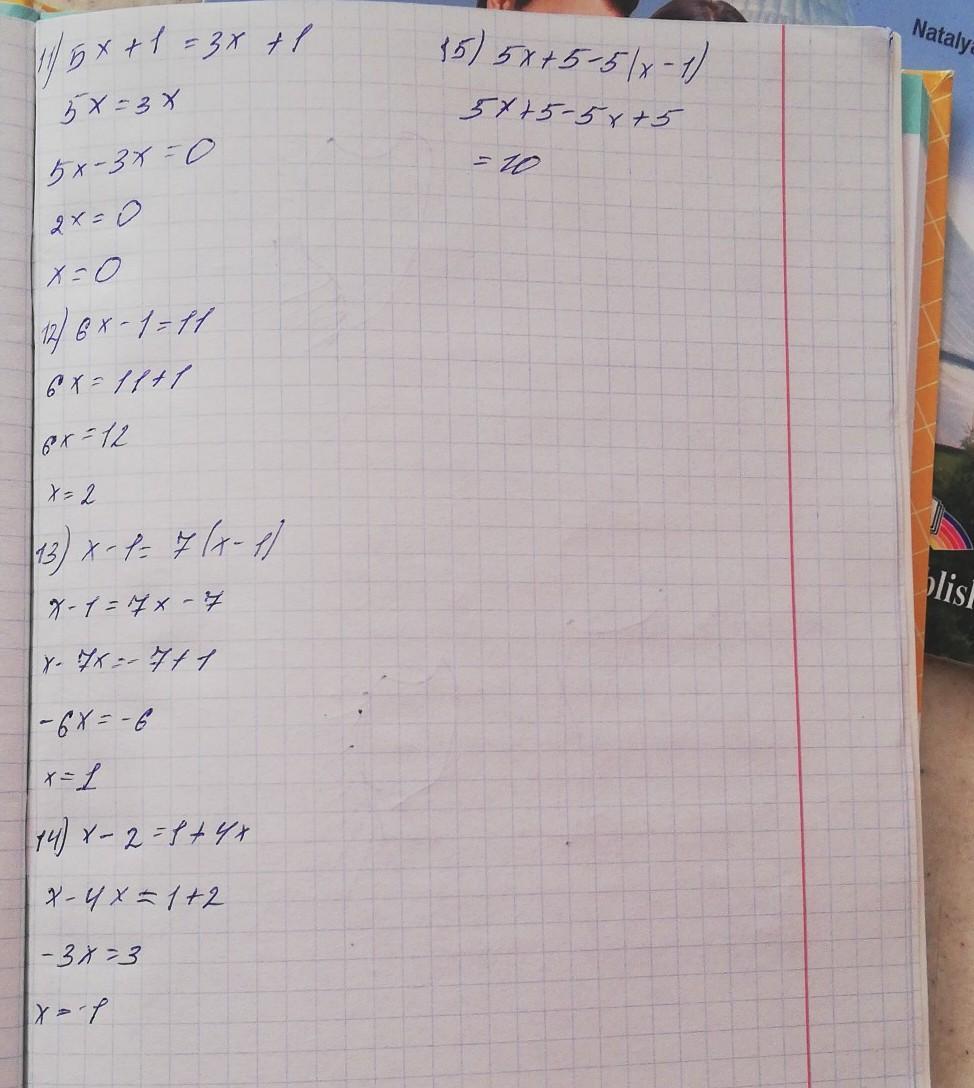 11) 5x + 1 = 3x + 1
5x = 3x
5x - 3x = 0
2x = 0
x = 0
12) 6x - 1 = 11
6x = 11 + 1
6x = 12
x = 2
13) x - 1 = 7(x - 1)
x - 1 = 7x - 7
x - 7x = - 7 + 1
-6x = -6
x = 1
14) x - 2 = 1 + 4x
x - 4x = 1 + 2
-3x = 3
x = -1
15) 5x + 5 - 5(x - 1)
5x + 5 - 5x + 5
= 10